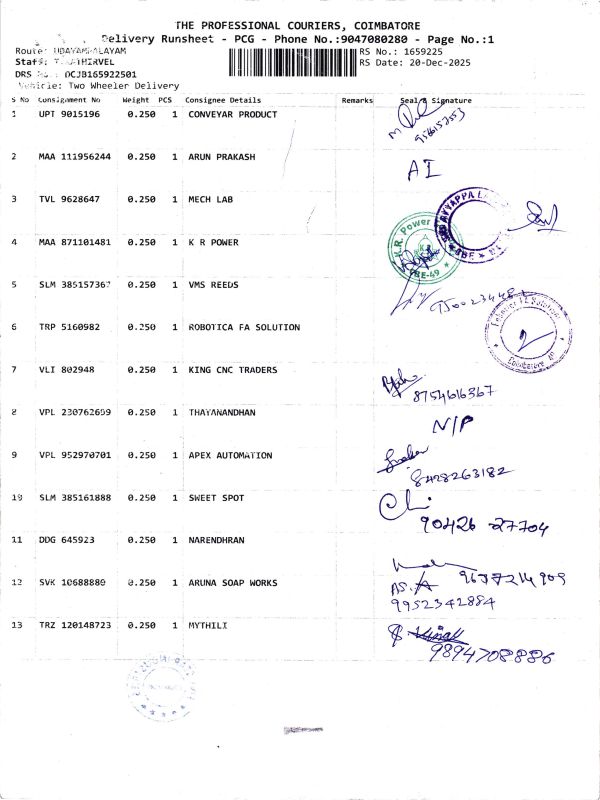 THE PROFESSIONAL COURIERS, COIMBATORE
Delivery Runsheet - PCG - Phone No.:9047080280 - Page No.:1
Route: UDAYAMPALAYAM
RS No.: 1659225
Staff:
RS Date: 20-Dec-2025
DRS No.: DCJB165922501
Vehicle: Two Wheeler Delivery
S No Consignment No Weight PCS Consignee Details Remarks Seal & Signature
1 UPT 9015196 0.250 1 CONVEYAR PRODUCT
2 MAA 111956244 0.250 1 ARUN PRAKASH AI
3 TVL 9628647 0.250 1 MECH LAB
4 MAA 871101481 0.250 1 K R POWER
K.R. Power
5 SLM 385157367 0.250 1 VMS REEDS
6 TRP 5160982 0.250 1 ROBOTICA FA SOLUTION
7 VLI 802948 0.250 1 KING CNC TRADERS
8754616367
8 VPL 230762699 0.250 1 THAYANANDHAN N/P
9 VPL 952970701 0.250 1 APEX AUTOMATION
8428263182
10 SLM 385161888 0.250 1 SWEET SPOT
90426 27704
11 DDG 645923 0.250 1 NARENDHRAN
9677214909
12 SVK 10688880 0.250 1 ARUNA SOAP WORKS AS.A
9952342884
13 TRZ 120148723 0.250 1 MYTHILI
9894708886